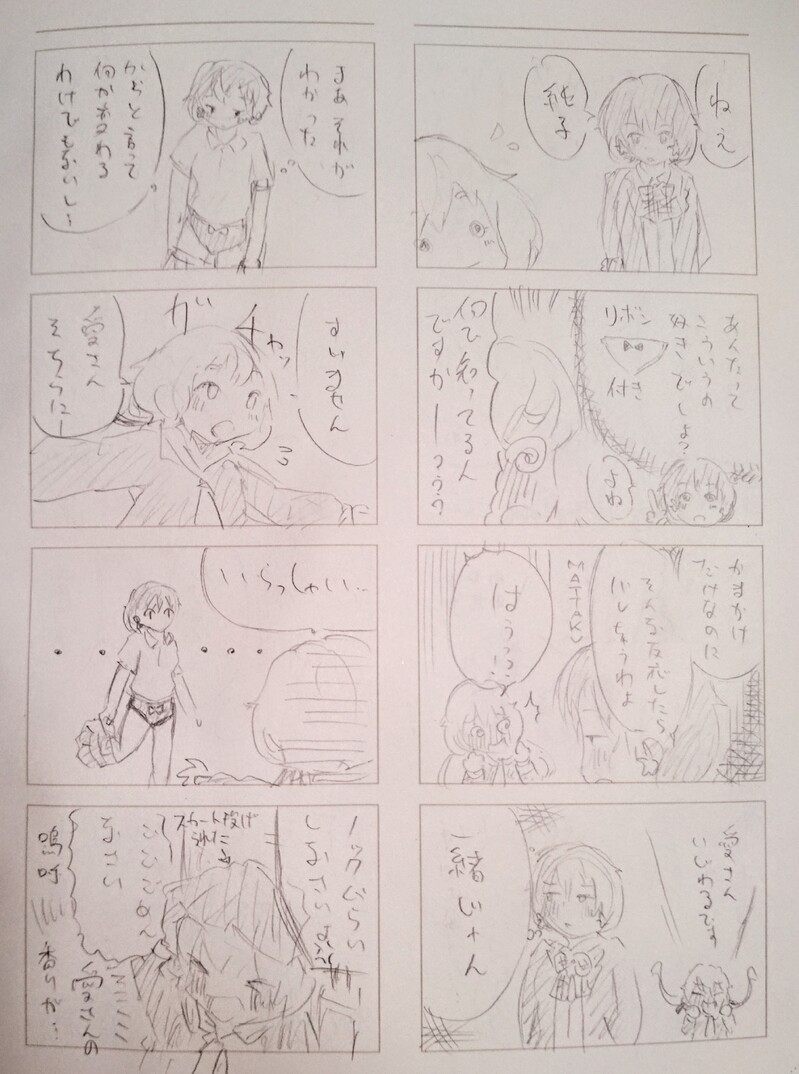 ねえ
純子
あんたって
こういうの
好きでしょ?
リボン
付き
よね
何で知ってるん
ですかーっうう?
かまかけ
だけなのに
そんな反応したら
バレちゃうわよ
MATTAKU
はうっっ!?
愛さん
いじわるです
一緒じゃん
まあそれが
わかった
からと言って
何か変わる
わけでもないし…
すいません
ガチャッ
愛さん
そちらに…
いらっしゃい…
・・・・・
ノックぐらい
しなさいよ
スカート投げ
られた
ごごごめん
なさい
愛さんの
嗚呼
香りが…